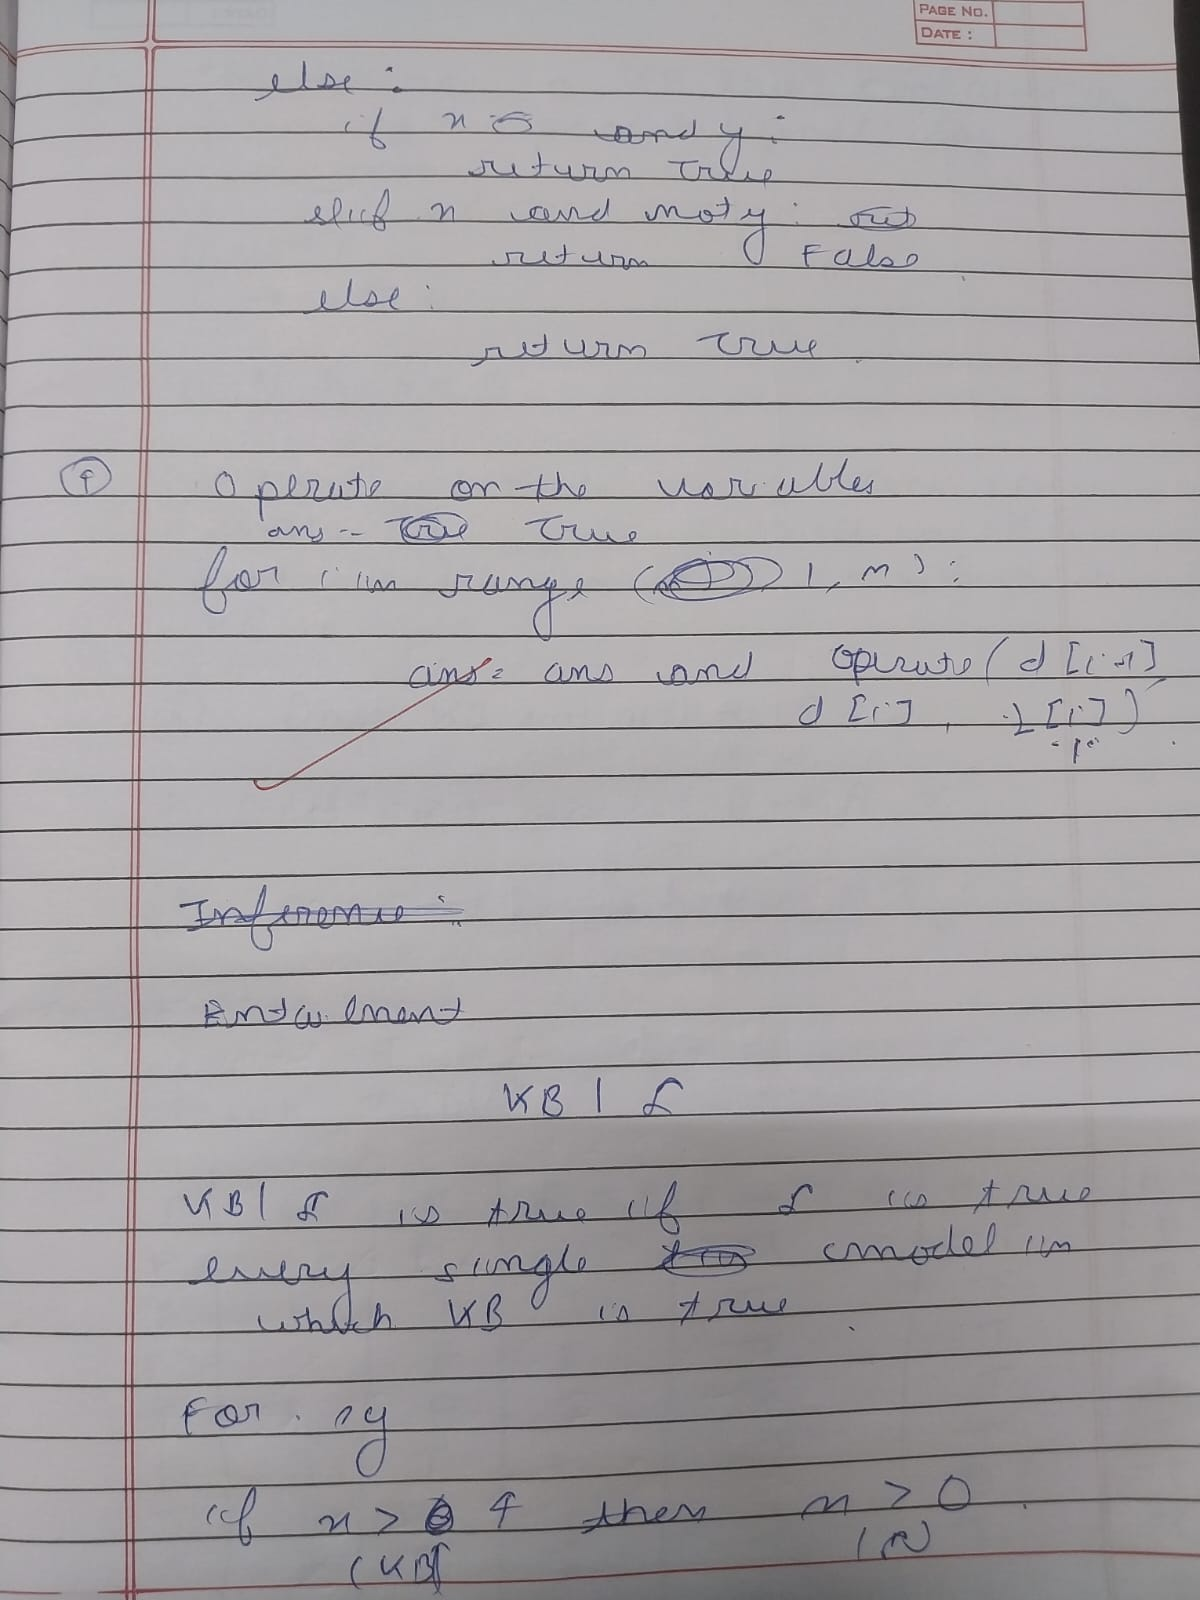 PAGE NO.
DATE :
else :
if x and y :
return True
elif x and not y :
return False
else :
return True
Operate on the variables
ans = True
for i in range ( 1, n ) :
ans = ans and operate ( d [i-1]
d [i] , [i] )
Inference :
Entailment
KB | α
KB | α is true if α is true
every single model in
which KB is true
For eg
if x > 4 then x > 0
(KB)